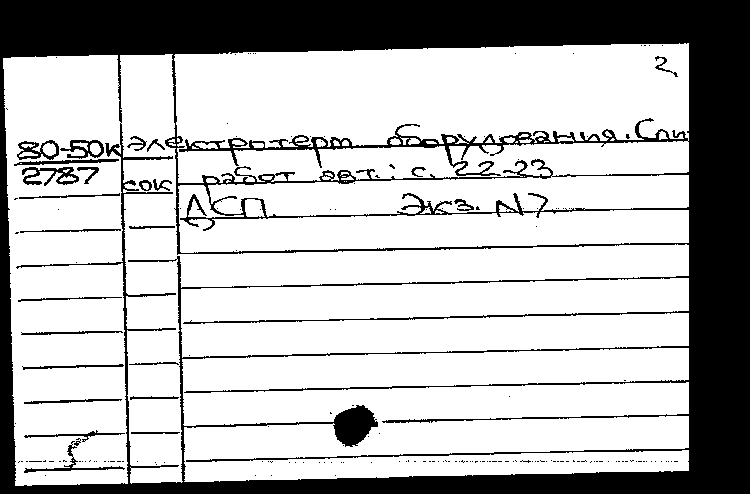 2
80-50к электротерм. оборудования. Спи
2787 сок работ авт.: с. 22-23
ДСП. Экз. N7.